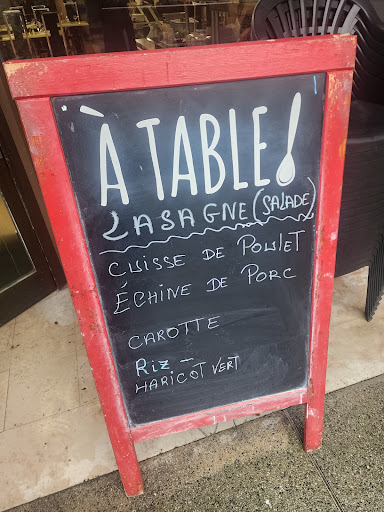 À TABLE!
LASAGNE (SALADE)
CUISSE DE POULET
ÉCHINE DE PORC
CAROTTE
RIZ -
HARICOT VERT